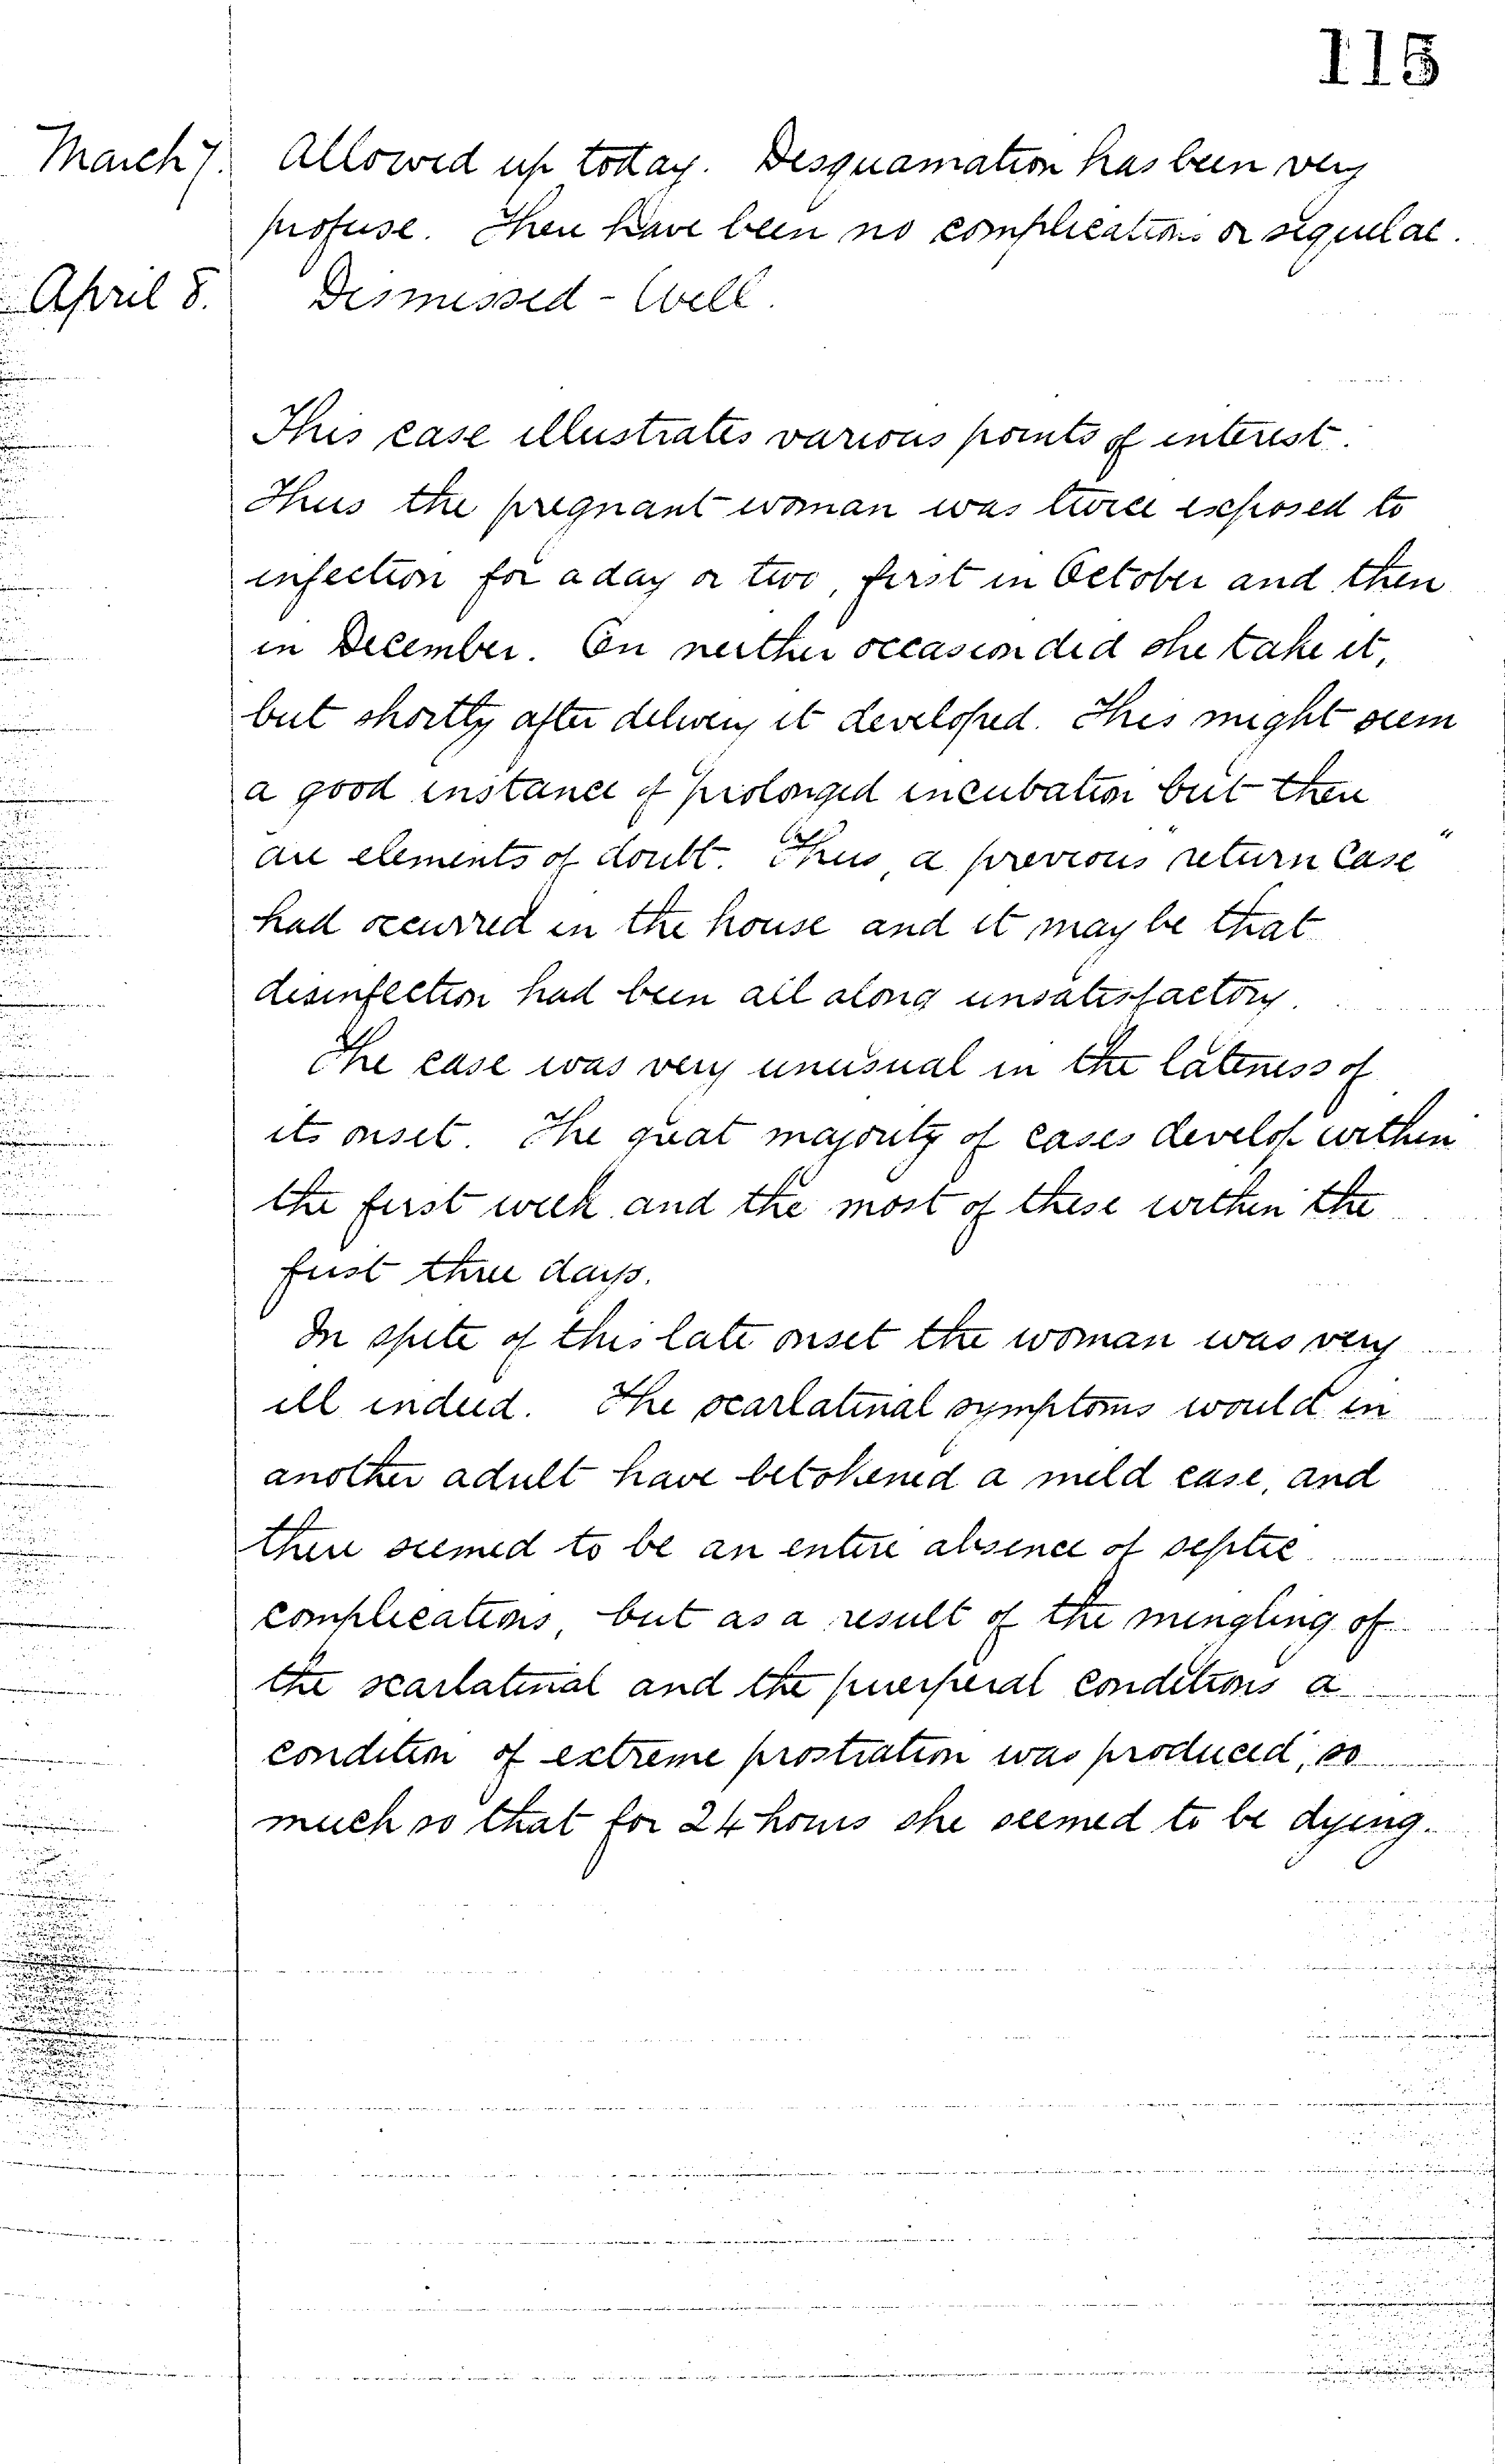 115
March 7. Allowed up today. Desquamation has been very
profuse. There have been no complications or sequelae.
April 8. Dismissed - Well.
This case illustrates various points of interest.
Thus the pregnant woman was twice exposed to
infection for a day or two, first in October and then
in December. On neither occasion did she take it,
but shortly after delivery it developed. This might seem
a good instance of prolonged incubation but there
are elements of doubt. Thus, a previous "return Case"
had occurred in the house and it may be that
disinfection had been all along unsatisfactory.
The case was very unusual in the lateness of
its onset. The great majority of cases develop within
the first week and the most of these within the
first three days.
In spite of this late onset the woman was very
ill indeed. The scarlatinal symptoms would in
another adult have betokened a mild case, and
there seemed to be an entire absence of septic
complications, but as a result of the mingling of
the scarlatinal and the puerperal conditions a
condition of extreme prostration was produced, so
much so that for 24 hours she seemed to be dying.